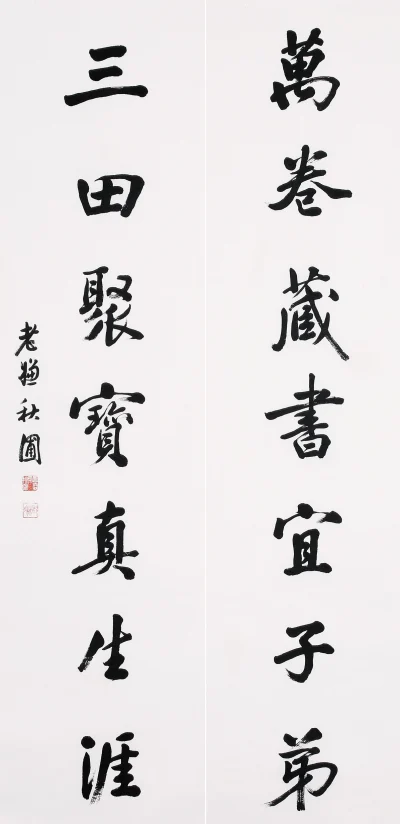 萬卷藏書宜子弟
三田聚寶真生涯
老秋圃